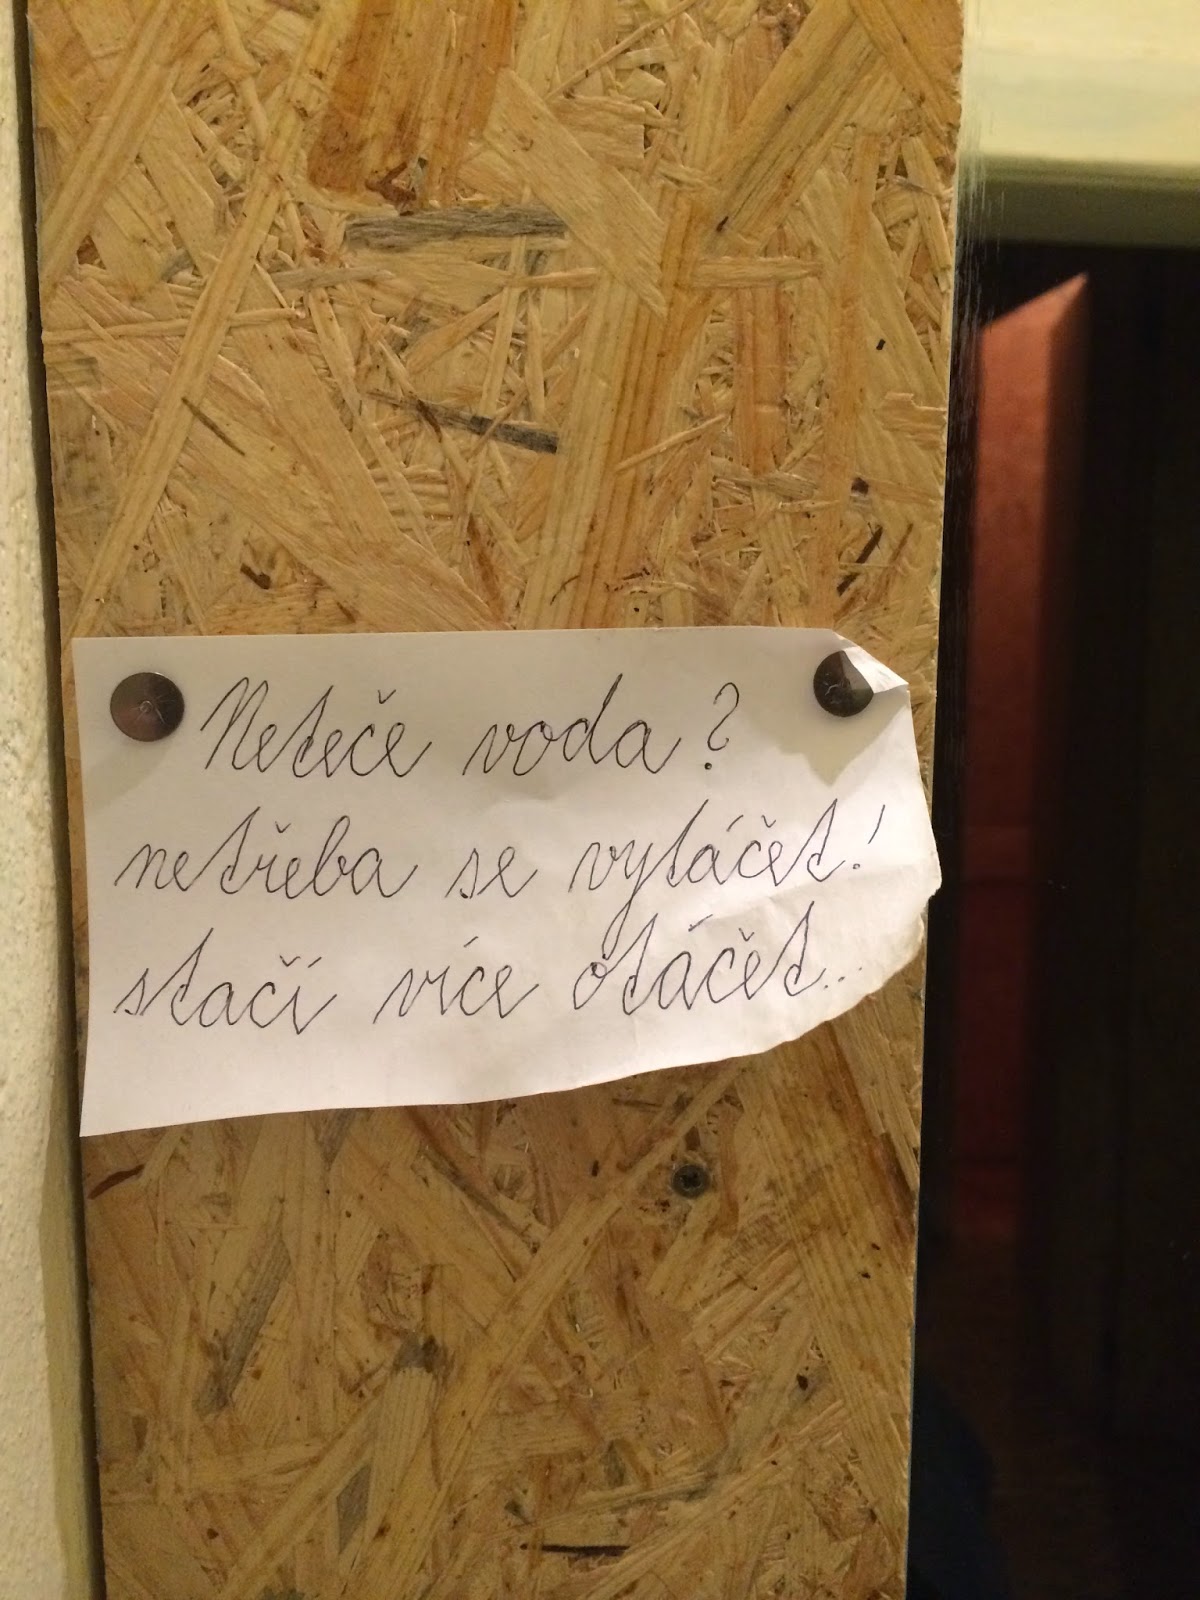 Neteče voda?
netřeba se vytáčet!
stačí více otáčet..